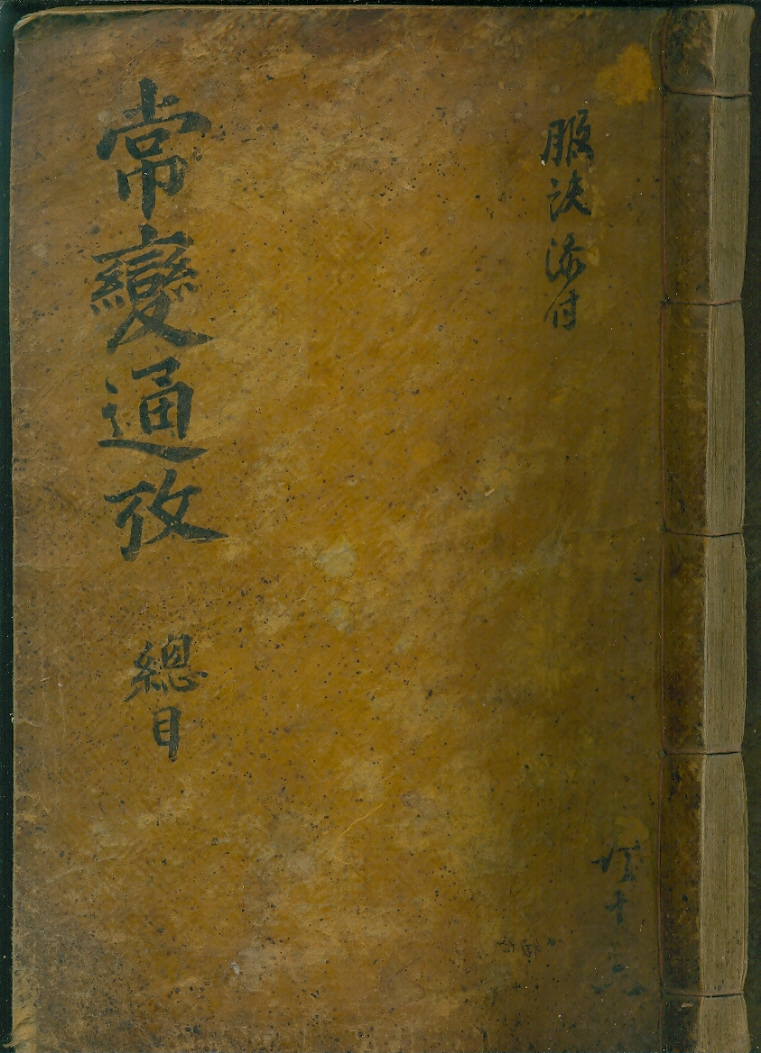 服訣添付
常變通攷 總目